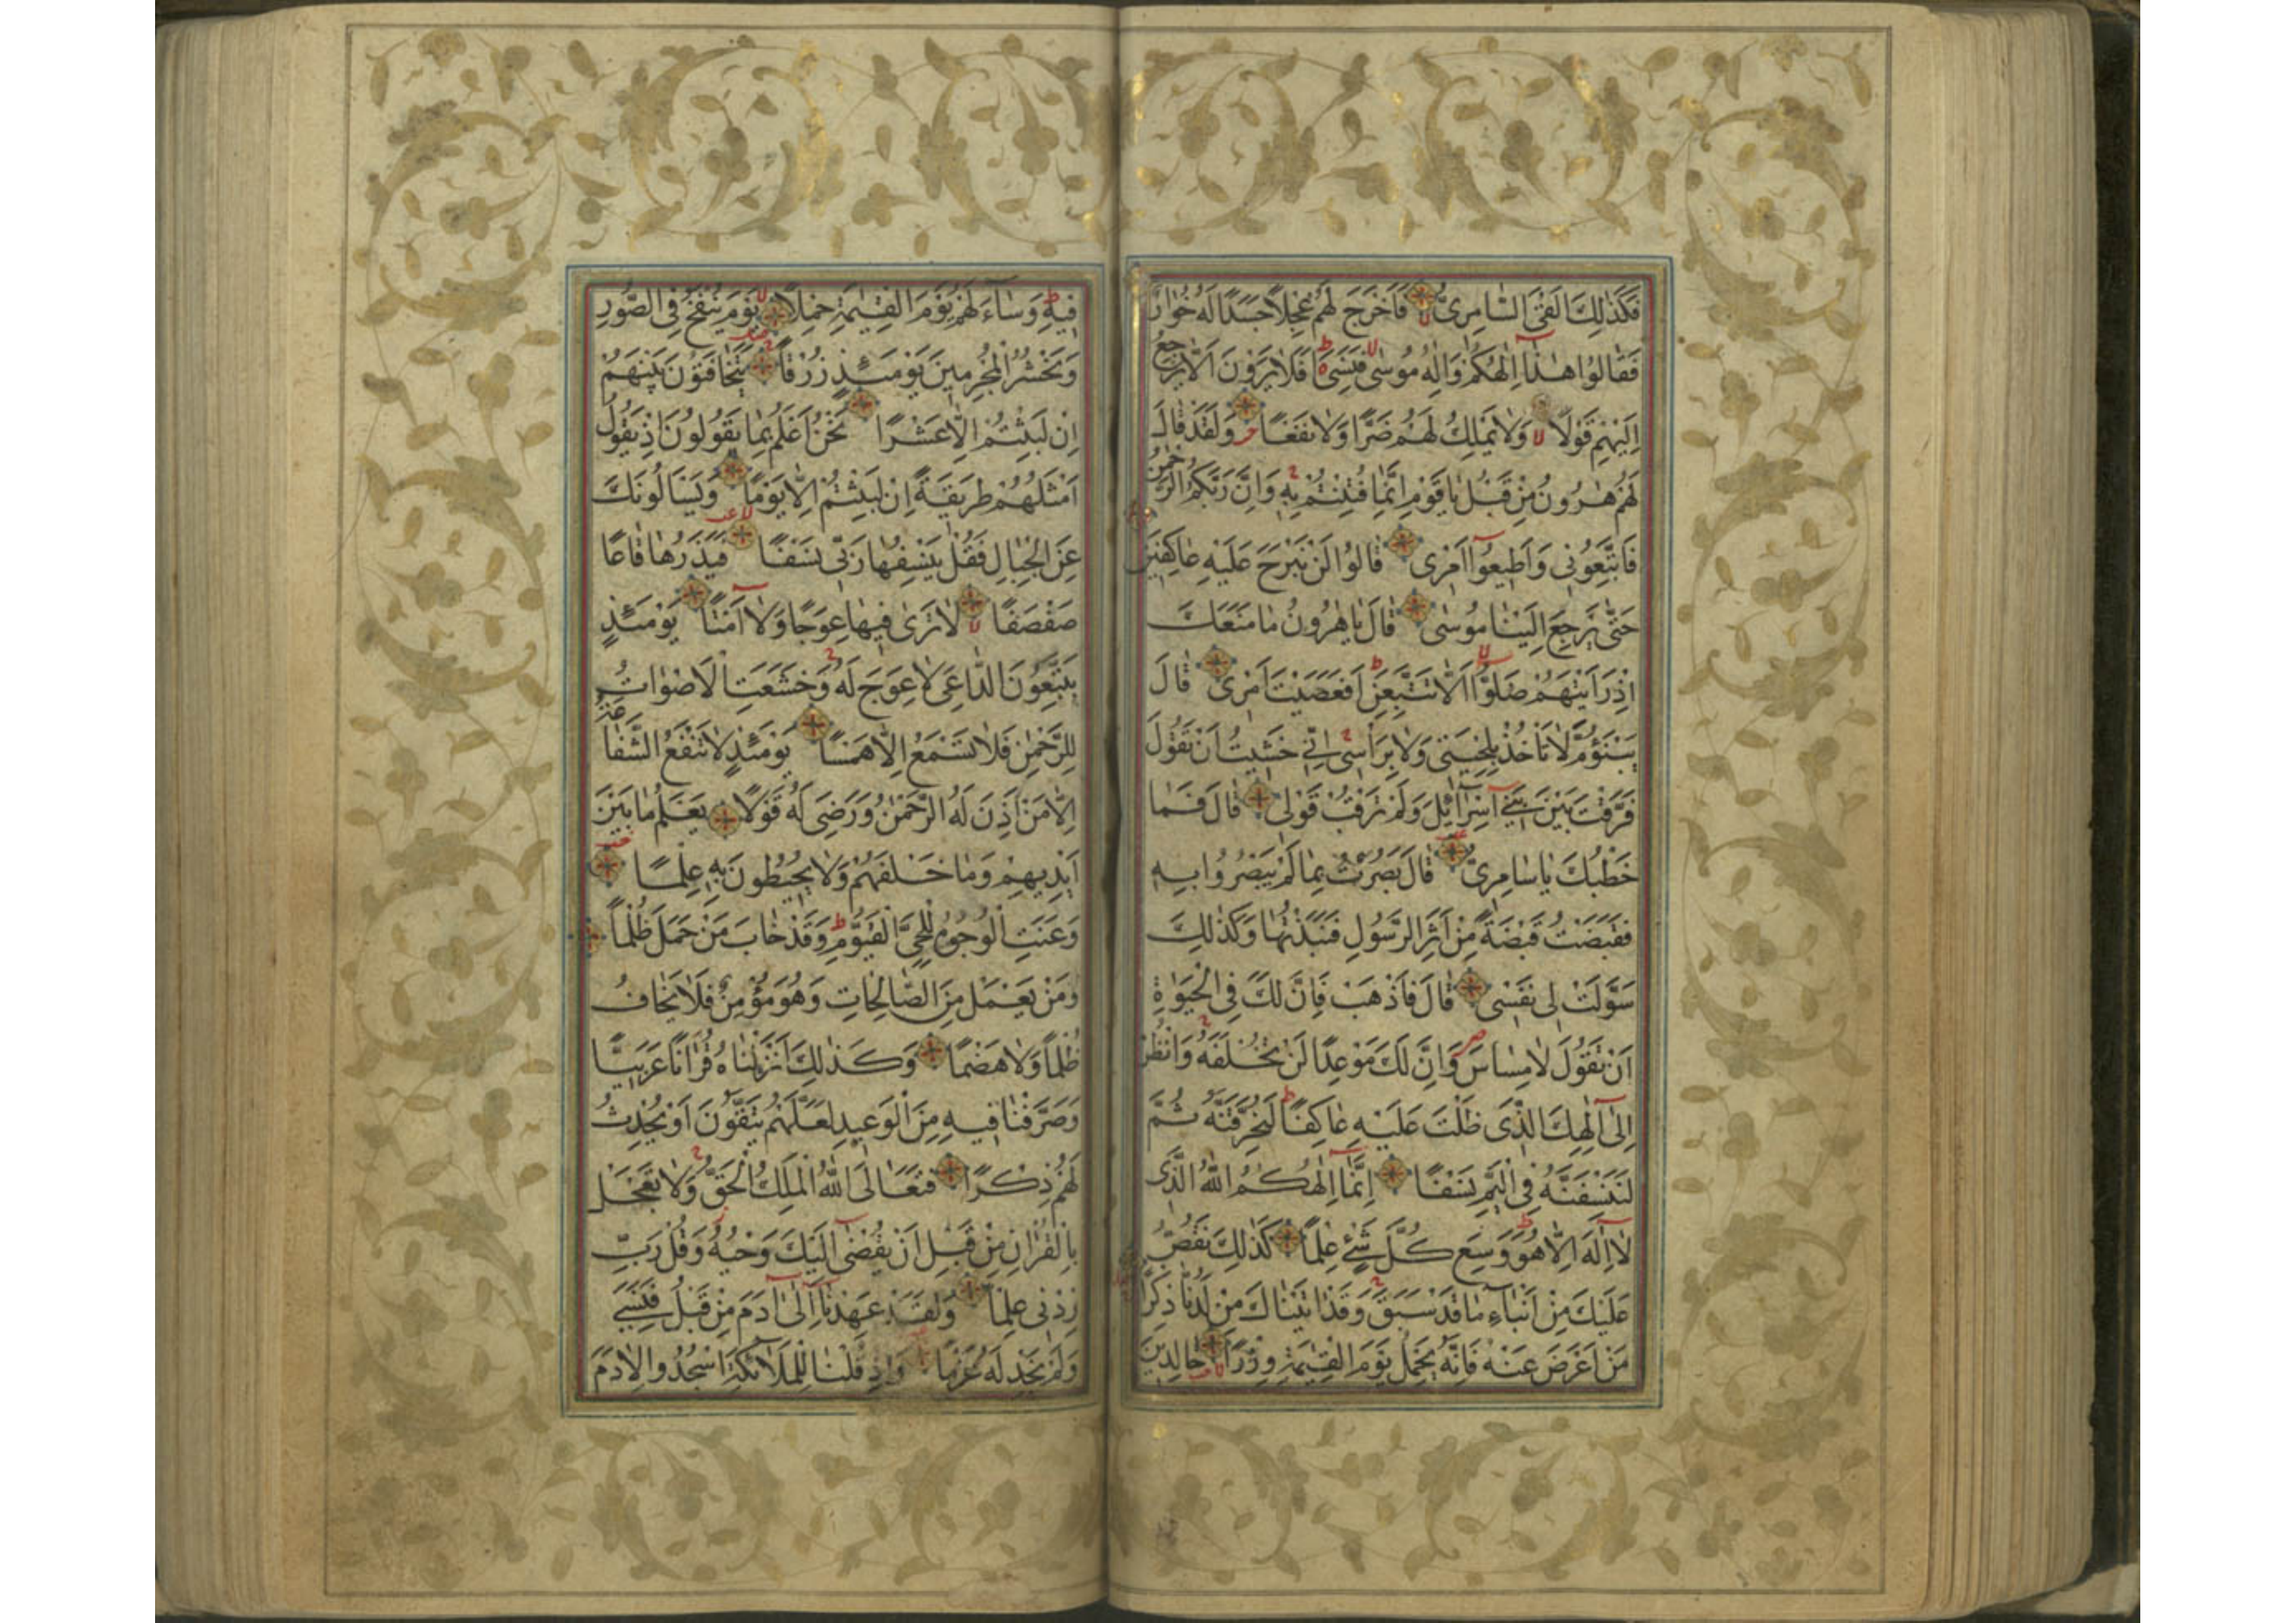 فَكَذٰلِكَ اَلْقَى السَّامِرِىُّ فَاَخْرَجَ لَهُمْ عِجْلًا جَسَدًا لَهُ خُوَارٌ
فَقَالُوا هٰذَا اِلٰهُكُمْ وَاِلٰهُ مُوسٰى فَنَسِىَ اَفَلَا يَرَوْنَ اَلَّا يَرْجِعُ
اِلَيْهِمْ قَوْلًا وَلَا يَمْلِكُ لَهُمْ ضَرًّا وَلَا نَفْعًا وَلَقَدْ قَالَ
لَهُمْ هٰرُونُ مِنْ قَبْلُ يَا قَوْمِ اِنَّمَا فُتِنْتُمْ بِهِ وَاِنَّ رَبَّكُمُ الرَّحْمٰنُ
فَاتَّبِعُونِى وَاَطِيعُوا اَمْرِى قَالُوا لَنْ نَبْرَحَ عَلَيْهِ عَاكِفِينَ
حَتّٰى يَرْجِعَ اِلَيْنَا مُوسٰى قَالَ يَا هٰرُونُ مَا مَنَعَكَ
اِذْ رَاَيْتَهُمْ ضَلُّوا اَلَّا تَتَّبِعَنِ اَفَعَصَيْتَ اَمْرِى قَالَ
يَبْنَؤُمَّ لَا تَاْخُذْ بِلِحْيَتِى وَلَا بِرَاْسِى اِنِّى خَشِيتُ اَنْ تَقُولَ
فَرَّقْتَ بَيْنَ بَنِى اِسْرَائِلَ وَلَمْ تَرْقُبْ قَوْلِى قَالَ فَمَا
خَطْبُكَ يَا سَامِرِىُّ قَالَ بَصُرْتُ بِمَا لَمْ يَبْصُرُوا بِهِ
فَقَبَضْتُ قَبْضَةً مِنْ اَثَرِ الرَّسُولِ فَنَبَذْتُهَا وَكَذٰلِكَ
سَوَّلَتْ لِى نَفْسِى قَالَ فَاذْهَبْ فَاِنَّ لَكَ فِى الْحَيٰوةِ
اَنْ تَقُولَ لَا مِسَاسَ وَاِنَّ لَكَ مَوْعِدًا لَنْ تُخْلَفَهُ وَانْظُرْ
اِلٰى اِلٰهِكَ الَّذِى ظَلْتَ عَلَيْهِ عَاكِفًا لَنُحَرِّقَنَّهُ ثُمَّ
لَنَنْسِفَنَّهُ فِى الْيَمِّ نَسْفًا اِنَّمَا اِلٰهُكُمُ اللّٰهُ الَّذِى
لَا اِلٰهَ اِلَّا هُوَ وَسِعَ كُلَّ شَىْءٍ عِلْمًا كَذٰلِكَ نَقُصُّ
عَلَيْكَ مِنْ اَنْبَاءِ مَا قَدْ سَبَقَ وَقَدْ اٰتَيْنَاكَ مِنْ لَدُنَّا ذِكْرًا
مَنْ اَعْرَضَ عَنْهُ فَاِنَّهُ يَحْمِلُ يَوْمَ الْقِيٰمَةِ وِزْرًا خَالِدِينَ
فِيهِ وَسَاءَ لَهُمْ يَوْمَ الْقِيٰمَةِ حِمْلًا يَوْمَ يُنْفَخُ فِى الصُّورِ
وَنَحْشُرُ الْمُجْرِمِينَ يَوْمَئِذٍ زُرْقًا يَتَخَافَتُونَ بَيْنَهُمْ
اِنْ لَبِثْتُمْ اِلَّا عَشْرًا نَحْنُ اَعْلَمُ بِمَا يَقُولُونَ اِذْ يَقُولُ
اَمْثَلُهُمْ طَرِيقَةً اِنْ لَبِثْتُمْ اِلَّا يَوْمًا وَيَسْاَلُونَكَ
عَنِ الْجِبَالِ فَقُلْ يَنْسِفُهَا رَبِّى نَسْفًا فَيَذَرُهَا قَاعًا
صَفْصَفًا لَا تَرٰى فِيهَا عِوَجًا وَلَا اَمْتًا يَوْمَئِذٍ
يَتَّبِعُونَ الدَّاعِىَ لَا عِوَجَ لَهُ وَخَشَعَتِ الْاَصْوَاتُ
لِلرَّحْمٰنِ فَلَا تَسْمَعُ اِلَّا هَمْسًا يَوْمَئِذٍ لَا تَنْفَعُ الشَّفَاعَةُ
اِلَّا مَنْ اَذِنَ لَهُ الرَّحْمٰنُ وَرَضِىَ لَهُ قَوْلًا يَعْلَمُ مَا بَيْنَ
اَيْدِيهِمْ وَمَا خَلْفَهُمْ وَلَا يُحِيطُونَ بِهِ عِلْمًا
وَعَنَتِ الْوُجُوهُ لِلْحَىِّ الْقَيُّومِ وَقَدْ خَابَ مَنْ حَمَلَ ظُلْمًا
وَمَنْ يَعْمَلْ مِنَ الصَّالِحَاتِ وَهُوَ مُؤْمِنٌ فَلَا يَخَافُ
ظُلْمًا وَلَا هَضْمًا وَكَذٰلِكَ اَنْزَلْنَاهُ قُرْاٰنًا عَرَبِيًّا
وَصَرَّفْنَا فِيهِ مِنَ الْوَعِيدِ لَعَلَّهُمْ يَتَّقُونَ اَوْ يُحْدِثُ
لَهُمْ ذِكْرًا فَتَعَالَى اللّٰهُ الْمَلِكُ الْحَقُّ وَلَا تَعْجَلْ
بِالْقُرْاٰنِ مِنْ قَبْلِ اَنْ يُقْضٰى اِلَيْكَ وَحْيُهُ وَقُلْ رَبِّ
زِدْنِى عِلْمًا وَلَقَدْ عَهِدْنَا اِلٰى اٰدَمَ مِنْ قَبْلُ فَنَسِىَ
وَلَمْ نَجِدْ لَهُ عَزْمًا وَاِذْ قُلْنَا لِلْمَلَائِكَةِ اسْجُدُوا لِاٰدَمَ